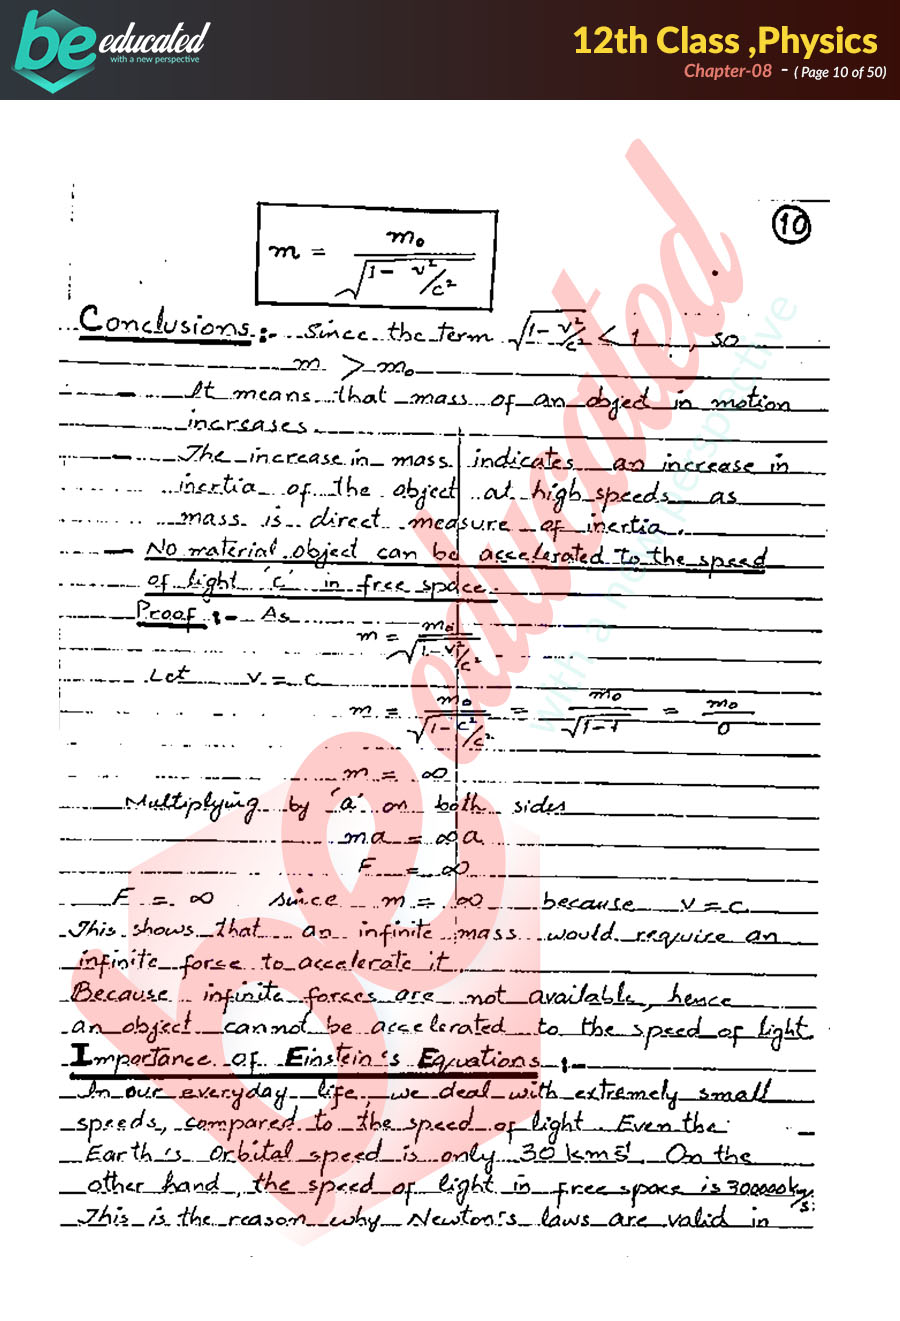 be educated
with a new perspective
12th Class ,Physics
Chapter-08 - ( Page 10 of 50)
10
m = m₀ / √(1 - v²/c²)
Conclusions :- Since the term √(1 - v²/c²) < 1 , so
m > m₀
- It means that mass of an object in motion
increases
- The increase in mass indicates an increase in
inertia of the object at high speeds as
mass is direct measure of inertia.
- No material object can be accelerated to the speed
of light 'c' in free space.
Proof :- As
m = m₀ / √(1 - v²/c²)
Let v = c
m = m₀ / √(1 - c²/c²) = m₀ / √(1-1) = m₀ / 0
m = ∞
Multiplying by 'a' on both sides
ma = ∞ a
F = ∞
F = ∞ since m = ∞ because v = c
This shows that an infinite mass would require an
infinite force to accelerate it
Because infinite forces are not available, hence
an object cannot be accelerated to the speed of light
Importance of Einstein's Equations :-
In our everyday life, we deal with extremely small
speeds, compared to the speed of light. Even the
Earth's orbital speed is only 30 kms⁻¹. On the
other hand, the speed of light in free space is 300000 km/s.
This is the reason why Newton's laws are valid in
be educated
with a new perspective